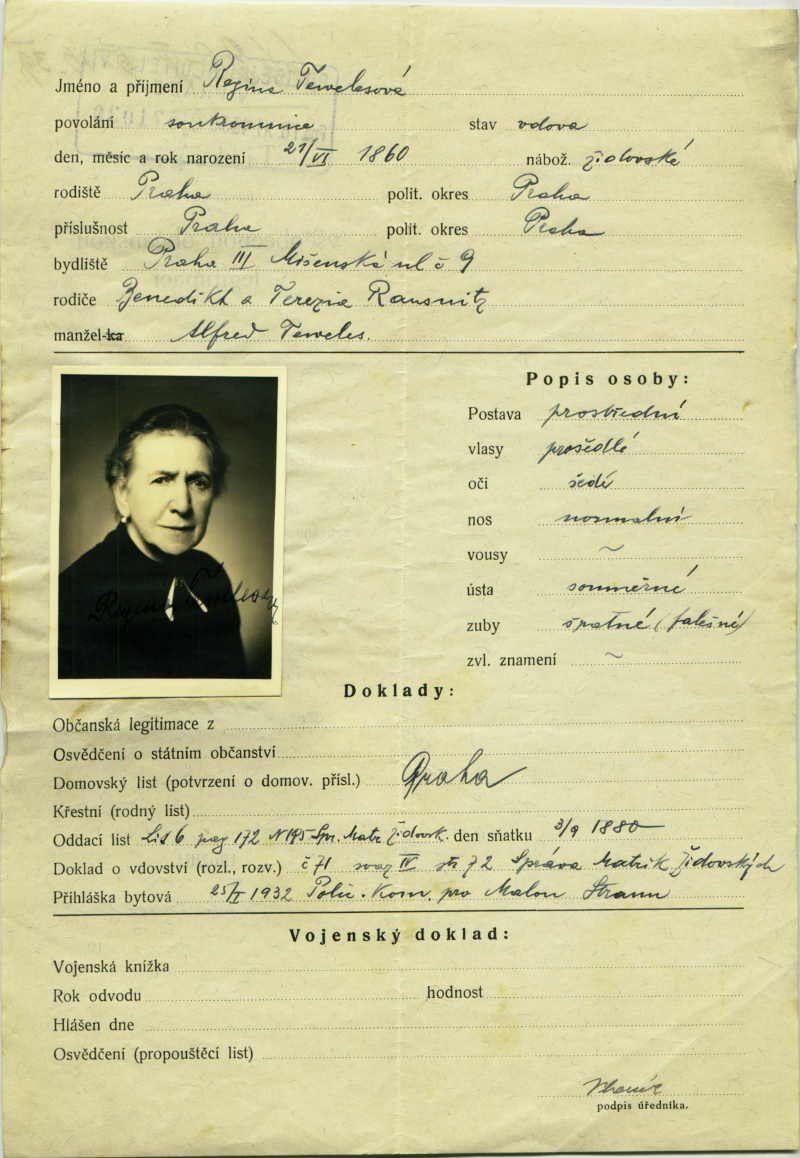 Jméno a příjmení Regina Tewelesová
povolání soukromnice stav vdova
den, měsíc a rok narození 21/VI 1860 nábož. židovské
rodiště Praha polit. okres Praha
příslušnost Praha polit. okres Praha
bydliště Praha III Míšenská ul č 9
rodiče Benedikt a Terezia Rausnitz
manžel-ka Alfred Teweles.
Popis osoby:
Postava prostřední
vlasy prošedlé
oči šedé
nos normalní
vousy ~
ústa souměrné
zuby špatné (falešné)
zvl. znamení ~
Regina Tewelesová
Doklady:
Občanská legitimace z
Osvědčení o státním občanství
Domovský list (potvrzení o domov. přísl.) Praha
Křestní (rodný list)
Oddací list Lit 6 pag 172 N 175 Spr. Matr židovsk. den sňatku 3/9 1880
Doklad o vdovství (rozl., rozv.) č 71 svaz IV str 72 Správa Matrik židovských
Přihláška bytová 25/I 1932 Polic. Kom. pro Malou Stranu
Vojenský doklad:
Vojenská knížka
Rok odvodu hodnost
Hlášen dne
Osvědčení (propouštěcí list)
podpis úředníka.